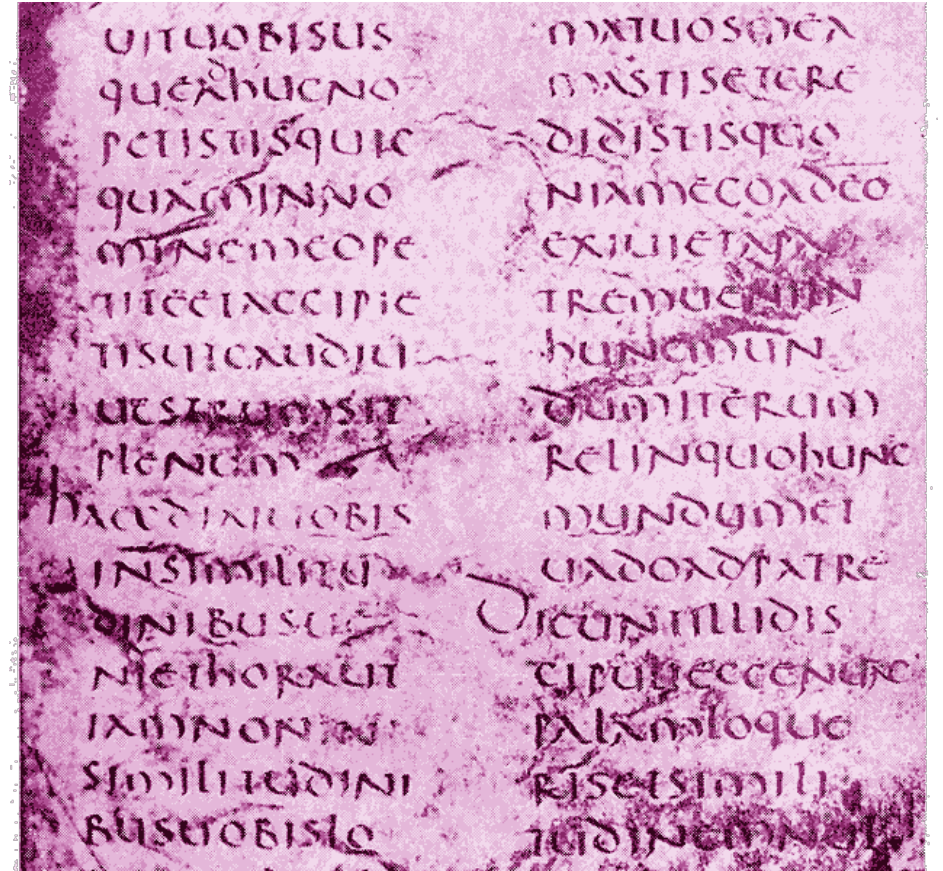 UITUOBISUS
QUEADHUCNO
PETISTISQUIC
QUAMINNO
MINEMEOPE
TITEETACCIPIE
TISUTGAUDIU
UESTRUMSIT
PLENUM
HAECDIXIUOBIS
INSIMILITU
DINIBUSUE
NIETHORAUT
IAMNONIN
SIMILITUDINI
BUSUOBISLO
MATUOSMEA
MASTISETCRE
DIDISTISQUO
NIAMECOADEO
EXIUIETAPA
TREMUENIIN
HUNCMUN
DUMITERUM
RELINQUOHUNC
MUNDUMET
UADOADPATRE
DICUNTILLIDIS
CIPULIECCENUNC
PALAMLOQUE
RISETSIMILI
TUDINEMNUL